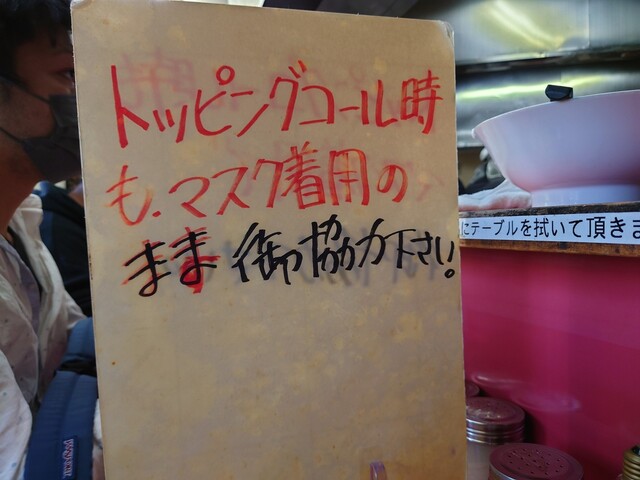 トッピングコール時
も、マスク着用の
まま御協力下さい。
にテーブルを拭いて頂きま
JANSPORT